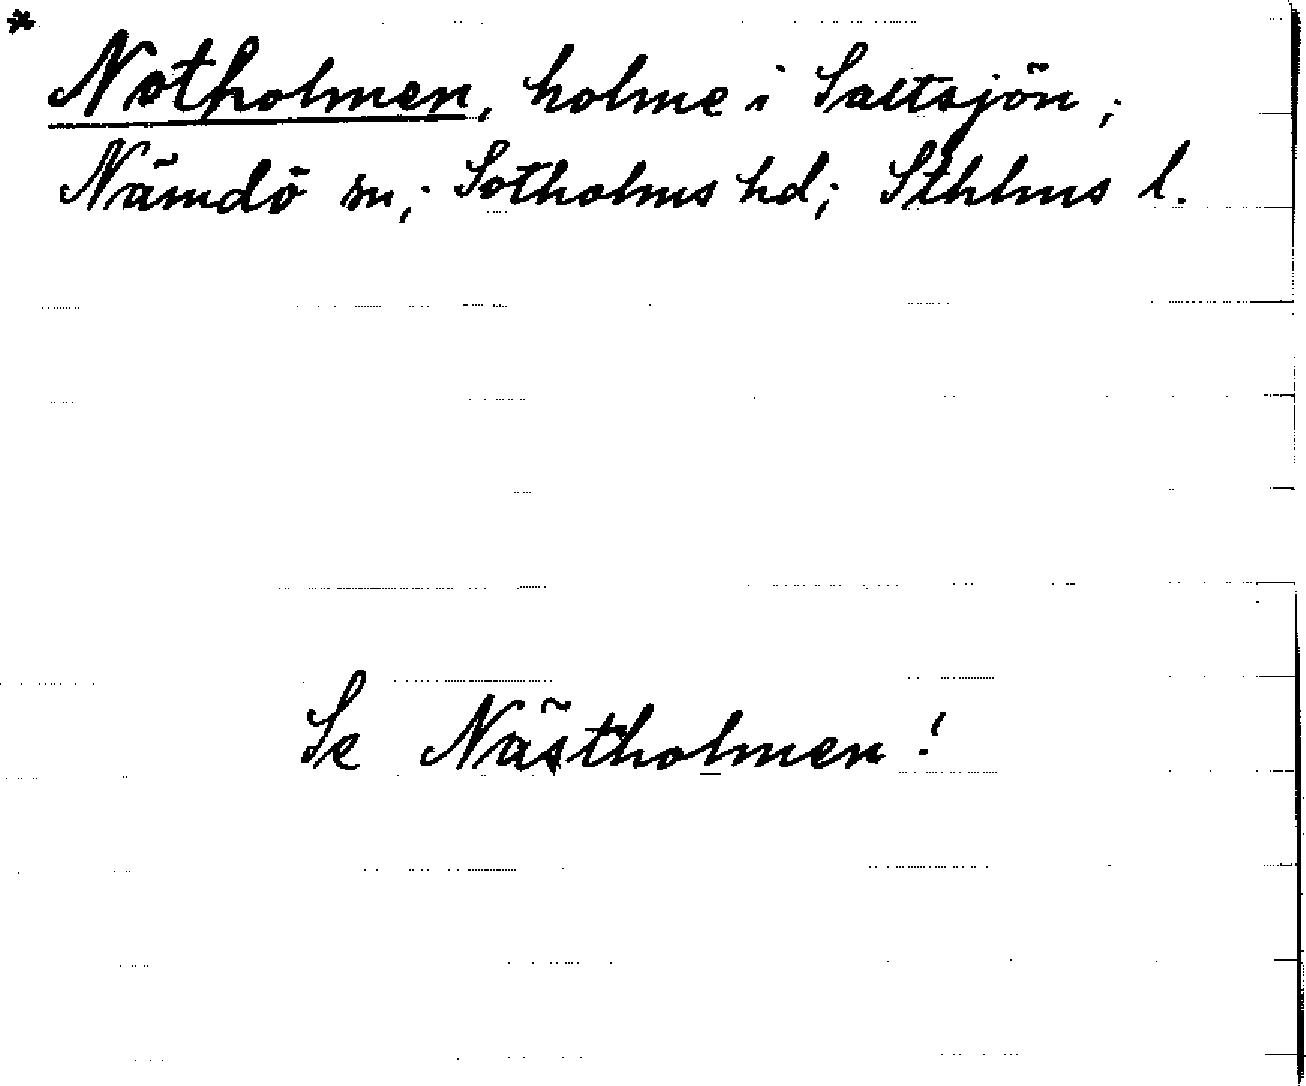 *
Notholmen, holme i Saltsjön;
Nämdö sn; Sotholms hd; Sthlms l.
Se Nästholmen!